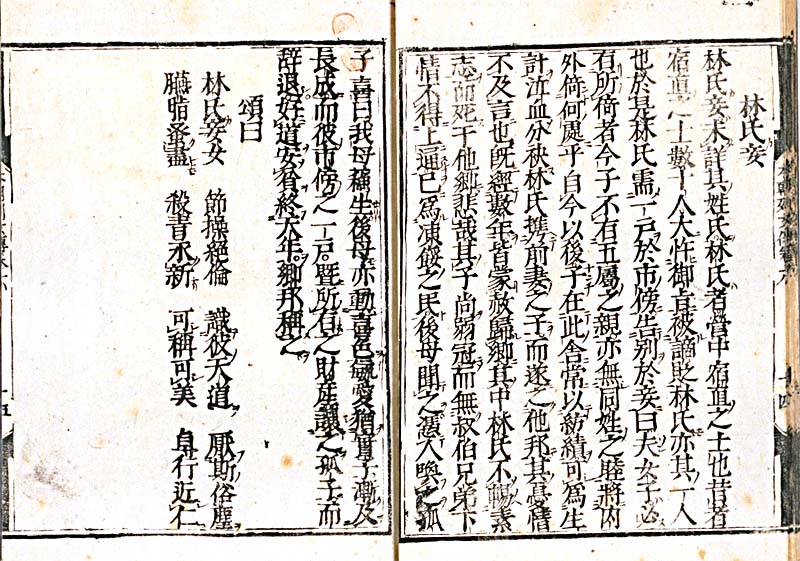 林氏妾
林氏妾未詳其姓氏林氏者營中宿直之士也昔者
宿直之士數十人大忤御旨被謫貶林氏亦其一人
也於是林氏需一戸於市傍告別於妾曰夫女子必
有所倚者今子不有五屬之親亦無同姓之睦將内
外倚何處乎自今以後子在此舎常以紡績可為生
計泣血分袂林氏携前妻之子而遂之他邦其憂情
不及言也既經數年皆蒙赦歸郷其中林氏不
志而死于他郷悲哉其子尚弱冠而無叔伯兄弟下
情不得上通已為凍餒之民後母聞之遣人喚之孤
子喜曰我母禱生後母亦動喜色寵愛猶實子漸及
長成而彼市傍之一戸曁所有之財産讓之孤子而
辞退好道安貧終天年郷邦稱之
頌曰
林氏妾女 節操絶倫 識彼天道 厭斯俗塵
臙暗 殺青永新 可稱可美 貞行近仁